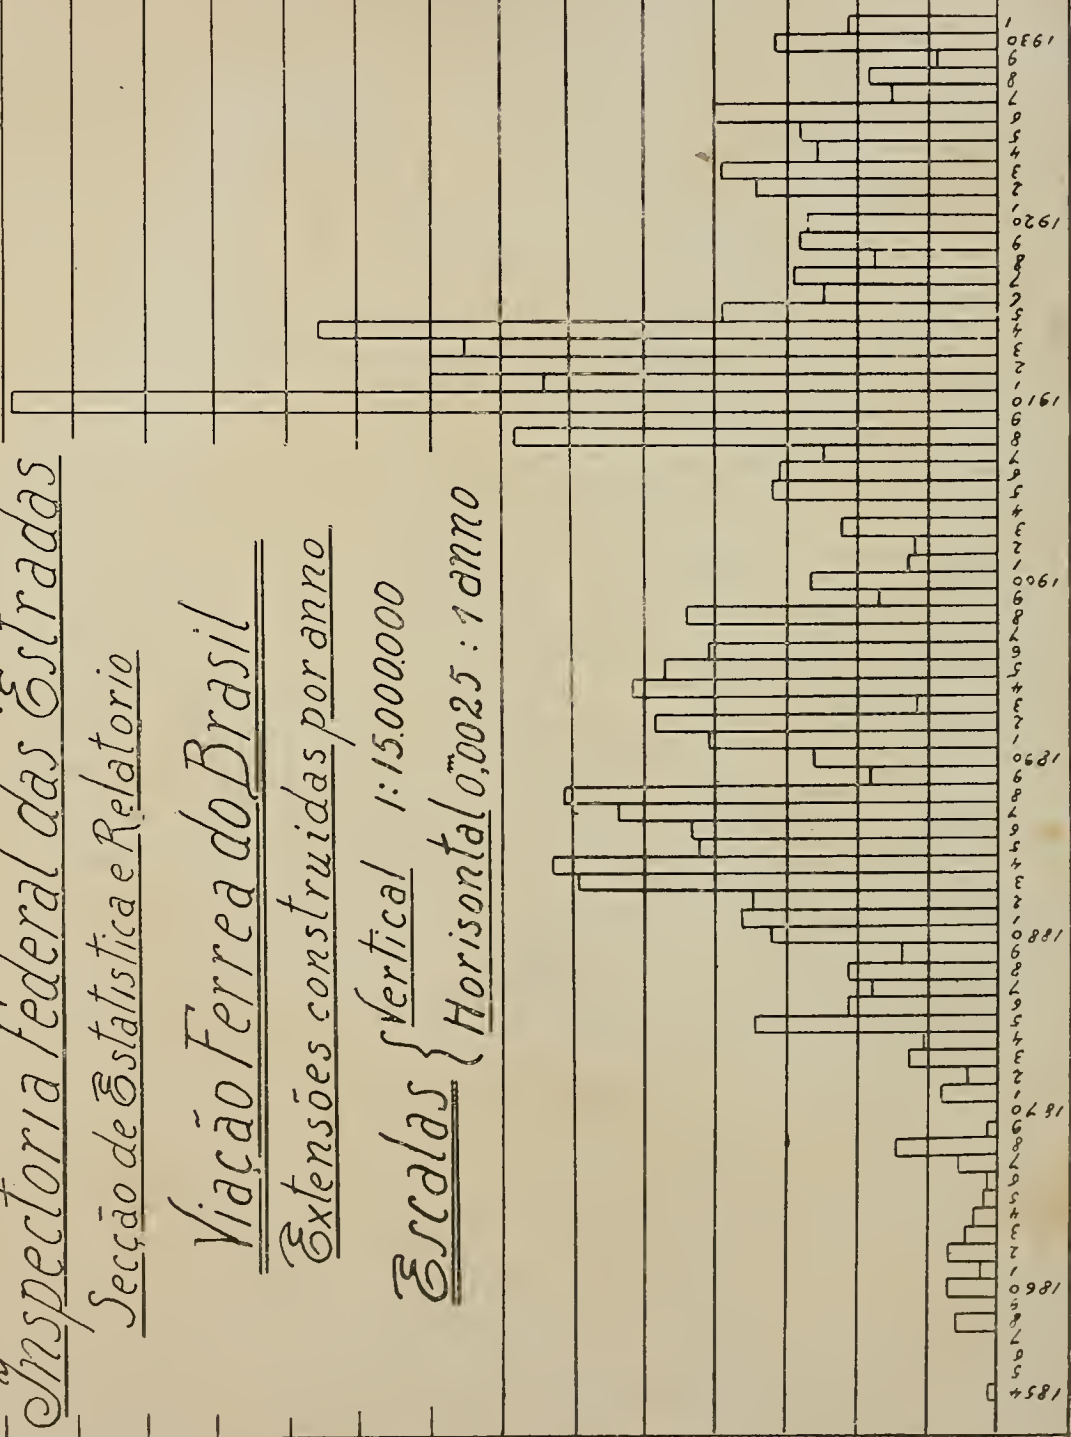 Inspectoria Federal das Estradas
Secção de Estatistica e Relatorio
Viação Ferrea do Brasil
Extensões construidas por anno
Escalas { Vertical 1:15.000.000
Horisontal 0,ᵐ0025 : 1 anno
1854 5 6 7 8 9 1860 1 2 3 4 5 6 7 8 9 1870 1 2 3 4 5 6 7 8 9 1880 1 2 3 4 5 6 7 8 9 1890 1 2 3 4 5 6 7 8 9 1900 1 2 3 4 5 6 7 8 9 1910 1 2 3 4 5 6 7 8 9 1920 1 2 3 4 5 6 7 8 9 1930 1